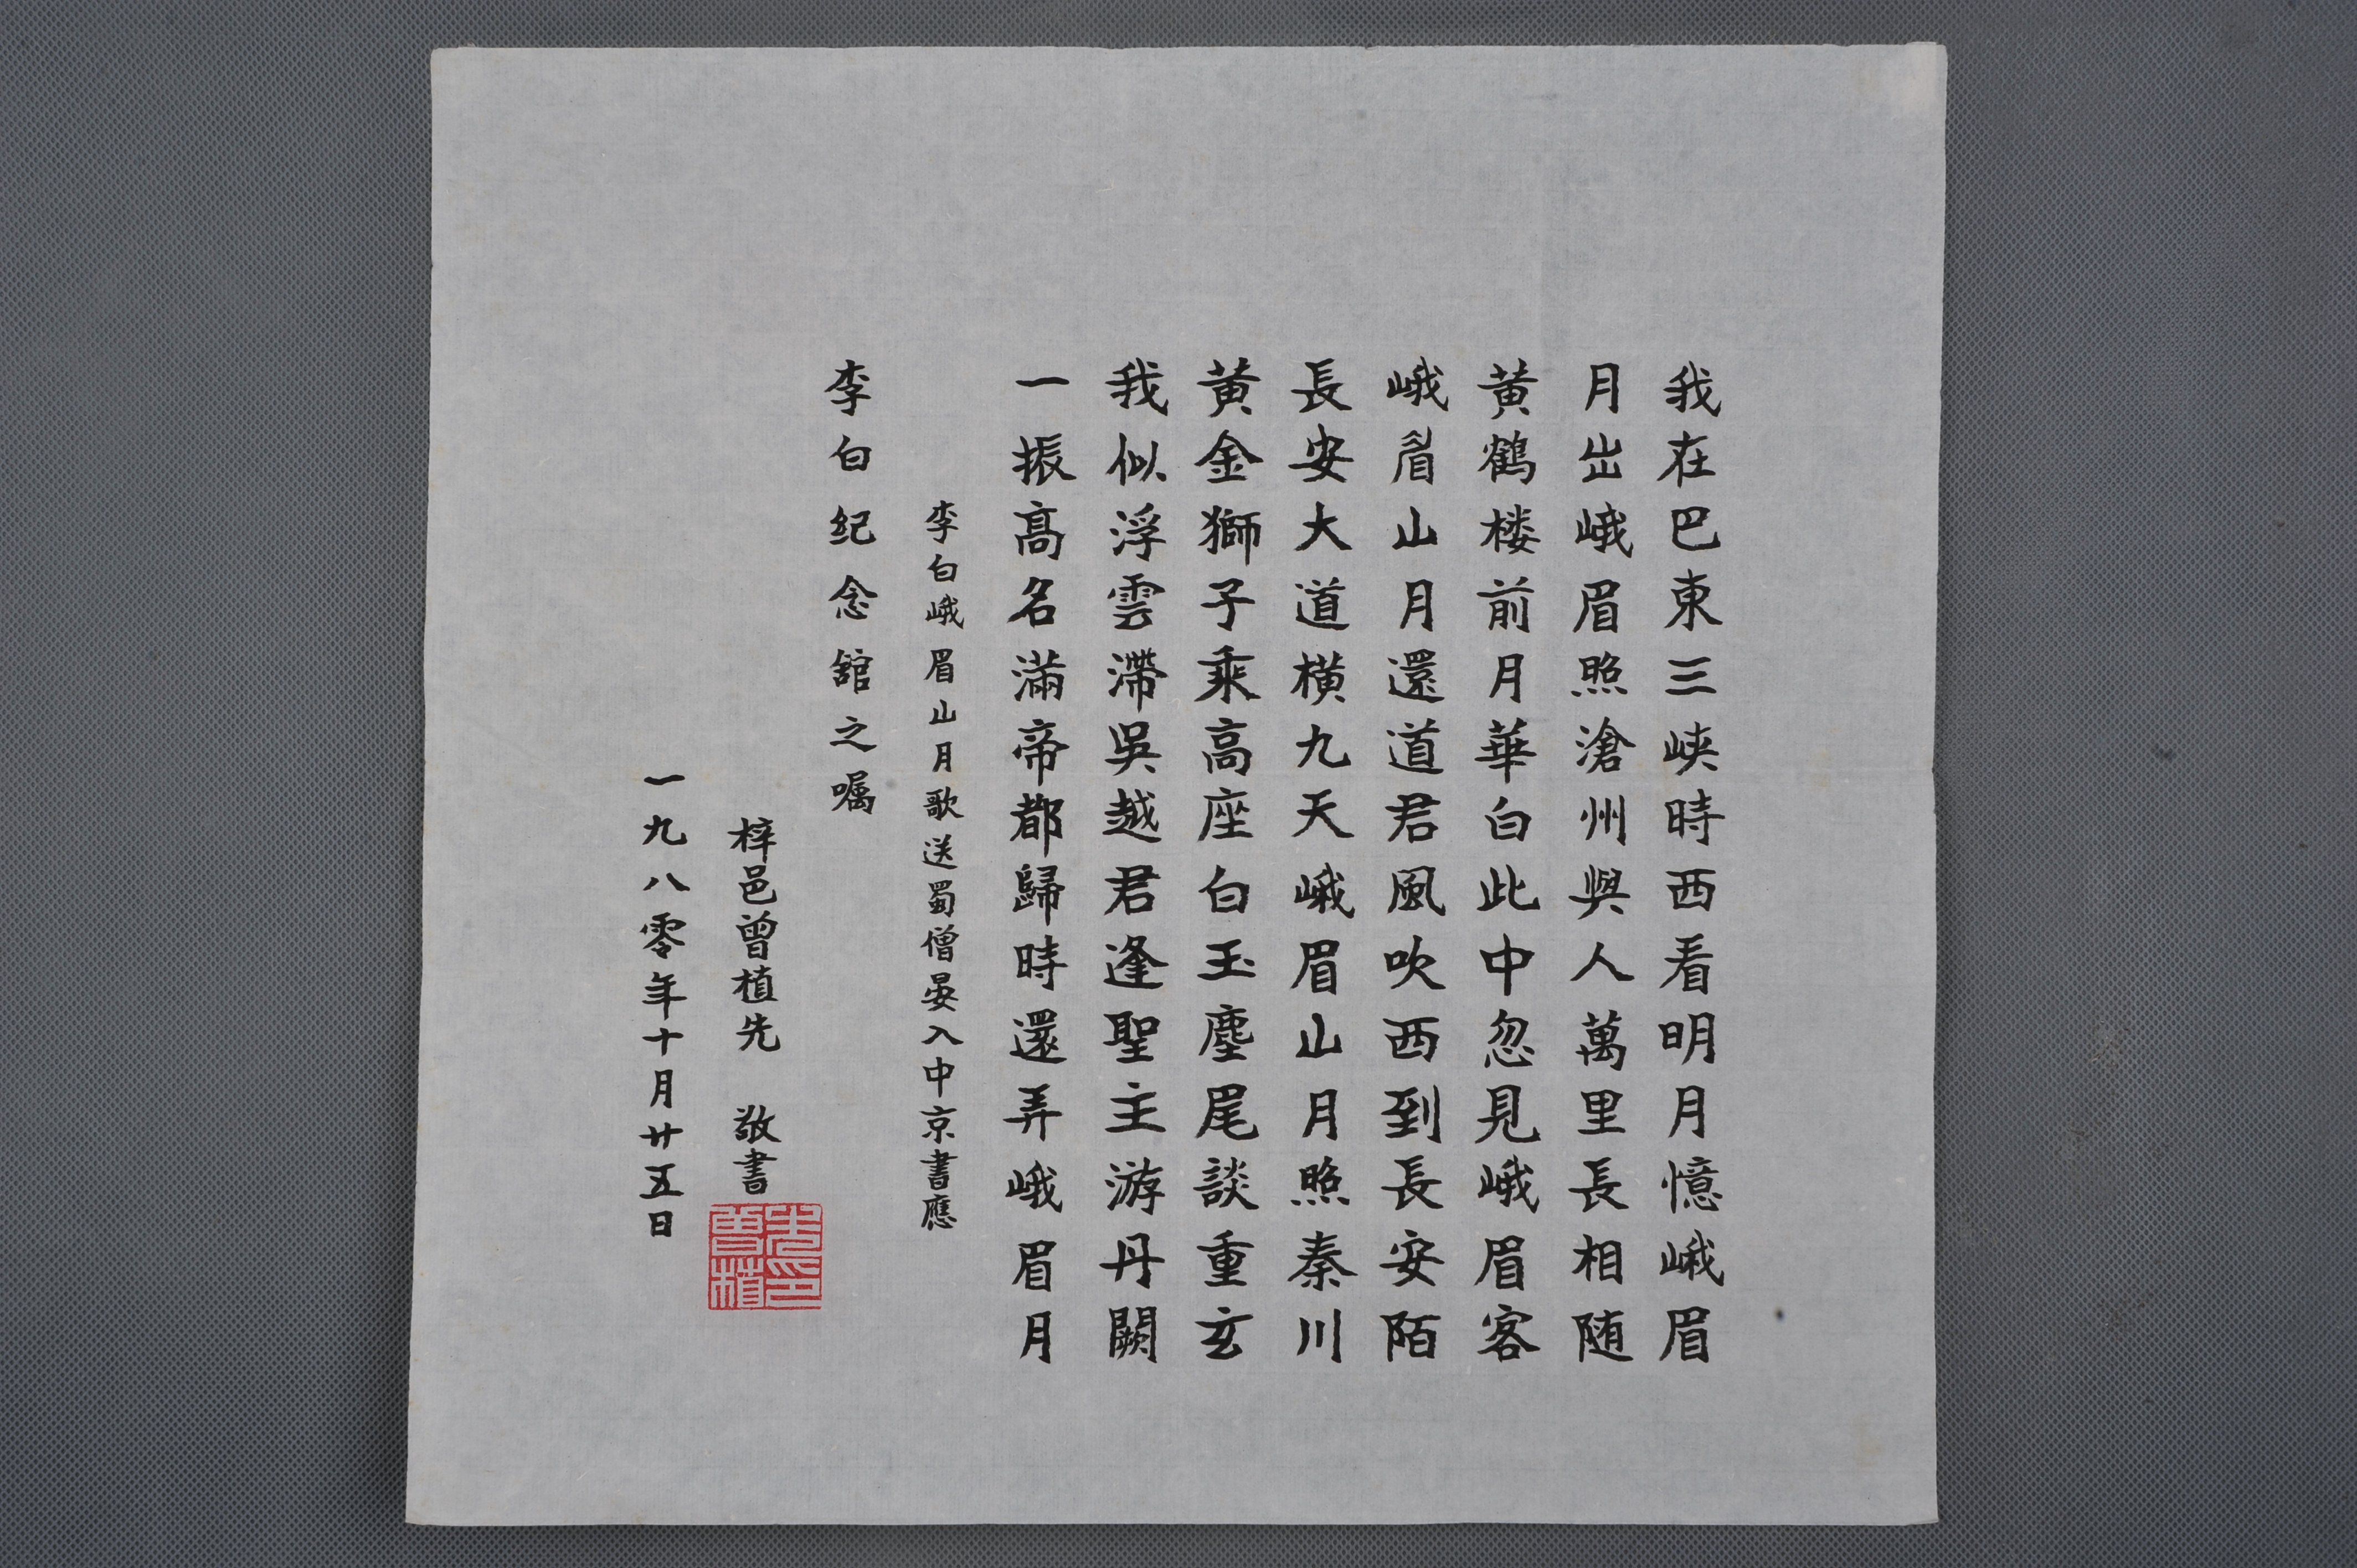 我在巴東三峽時西看明月憶峨眉
月出峨眉照滄州與人萬里長相随
黄鶴楼前月華白此中忽見峨眉客
峨眉山月還道君風吹西到長安陌
長安大道橫九天峨眉山月照秦川
黄金獅子乘高座白玉塵尾談重玄
我似浮雲滯吳越君逢聖主游丹闕
一振髙名滿帝都歸時還弄峨眉月
李白峨眉山月歌送蜀僧晏入中京書應
李白纪念舘之囑
梓邑曾植先 敬書
一九八零年十月廿五日
曾植先印